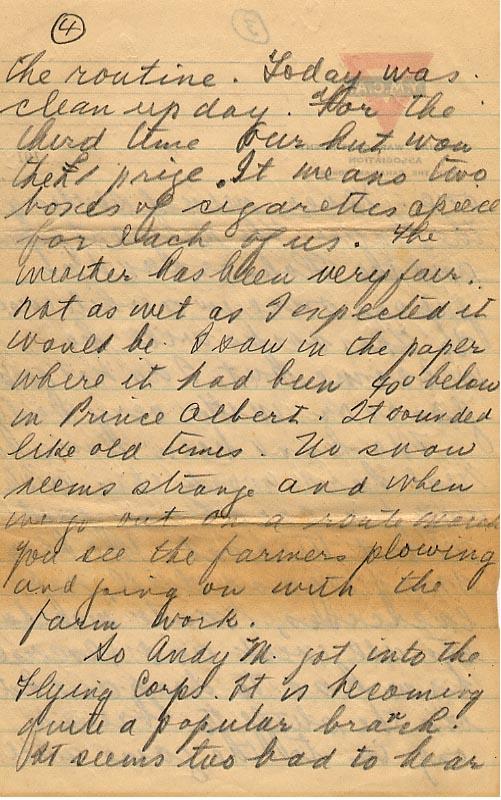 4
the routine. Today was
clean up day. For the
third time our hut won
the prize. It means two
boxes of cigarettes apiece
for each of us. The
weather has been very fair.
not as wet as I expected it
would be. I saw in the paper
where it had been 40° below
in Prince Albert. It sounded
like old times. No snow
seems strange and when
we go out on a route march
you see the farmers plowing
and going on with the
farm work.
So Andy M. got into the
Flying Corps. It is becoming
quite a popular branch.
It seems too bad to hear